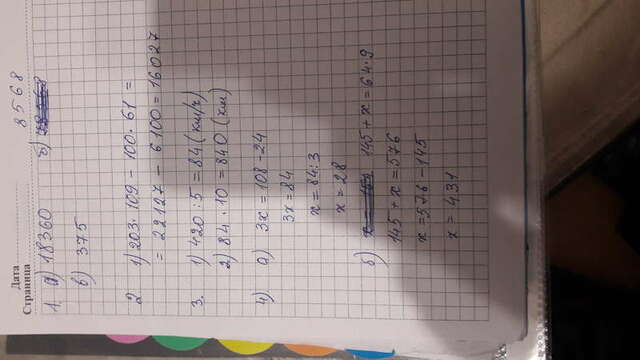 Дата
8568
Страница
1. а) 18360 б)
в) 375
2 1) 203 · 109 - 100 · 61 =
= 22127 - 6100 = 16027
3. 1) 420 : 5 = 84 (км/ч)
2) 84 · 10 = 840 (км)
4) а) 3x = 108 - 24
3x = 84
x = 84 : 3
x = 28
б) 145 + x = 64 · 9
145 + x = 576
x = 576 - 145
x = 431